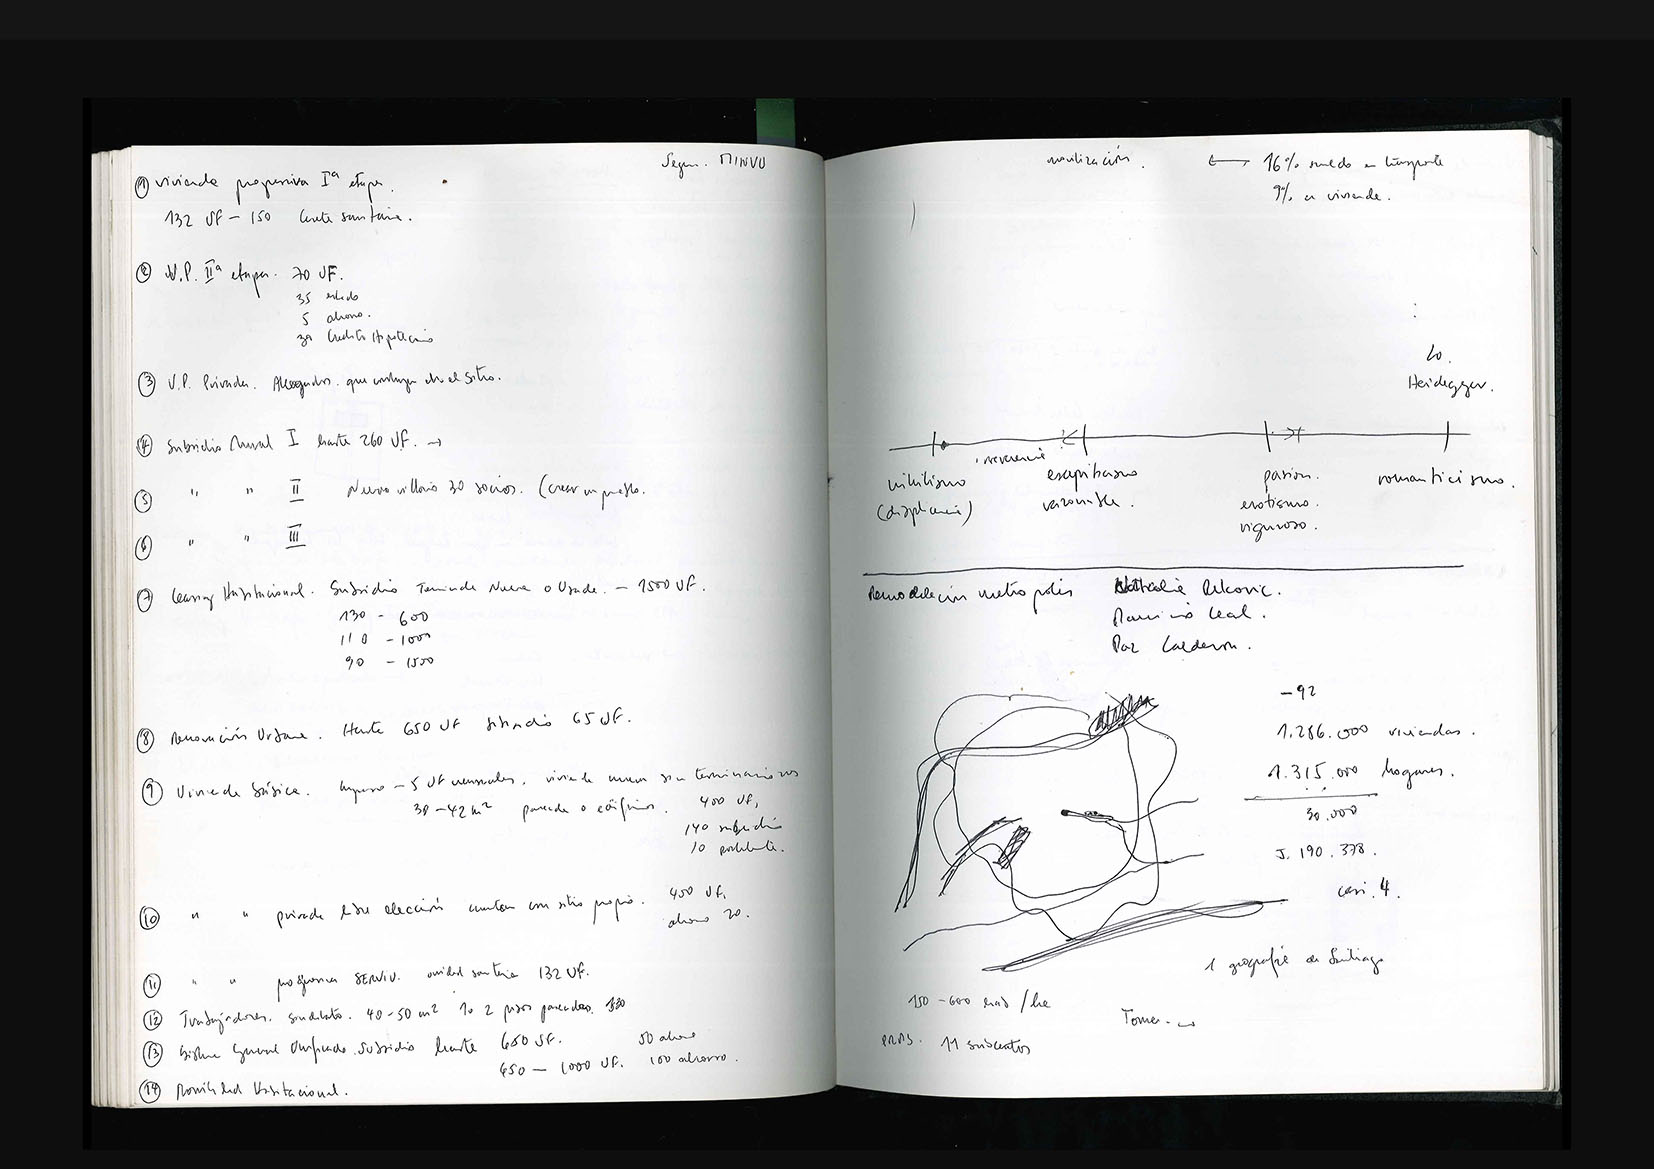 Segun. MINVU
① vivienda progresiva Iª etapa.
132 UF - 150 caseta sanitaria.
② V.P. IIª etapa. 70 UF.
35 estado
5 ahorro.
30 Credito Hipotecario
③ V.P. Privada. Allegados. que construyen en el sitio.
④ Subsidio Rural I hasta 260 UF. →
⑤ " " II Nuevo villorrio 30 socios. (crear un pueblo.
⑥ " " III
⑦ Leasing Habitacional. Subsidio Vivienda Nueva o Usada. - 1500 UF.
130 - 600
110 - 1000
90 - 1500
⑧ Renovación Urbana. Hasta 650 UF subsidio 65 UF.
⑨ Vivienda Básica. Ingreso - 5 UF mensuales. vivienda nueva sin terminaciones
38-42 m² pareada o edificios. 400 UF,
140 subsidio
10 postulante.
⑩ " " privada libre elección cuentan con sitio propio. 400 UF,
ahorro 20.
⑪ " " programa SERVIU. unidad sanitaria 132 UF.
⑫ Trabajadores. sindicato. 40-50 m² 1o 2 pisos pareadas.
⑬ Sistema General Unificado. Subsidio hasta 650 UF. 50 ahorro
650 - 1000 UF. 100 ahorro.
⑭ Movilidad Habitacional.
movilización. ← 16% sueldo en transporte
9% en vivienda.
Lo.
Heidegger.
irreverencia
nihilismo escepticismo pasion. romanticismo.
(disciplencia) razonable. erotismo.
riguroso.
Remodelacion metropolis
Leal.
Paz Calderon.
-92
1.286.000 viviendas.
1.315.000 hogares.
30.000
J. 190.378.
casi 4.
1 geografia de Santiago
150-600 hab /ha
Tomar. →
PRMS. 11 subcentros